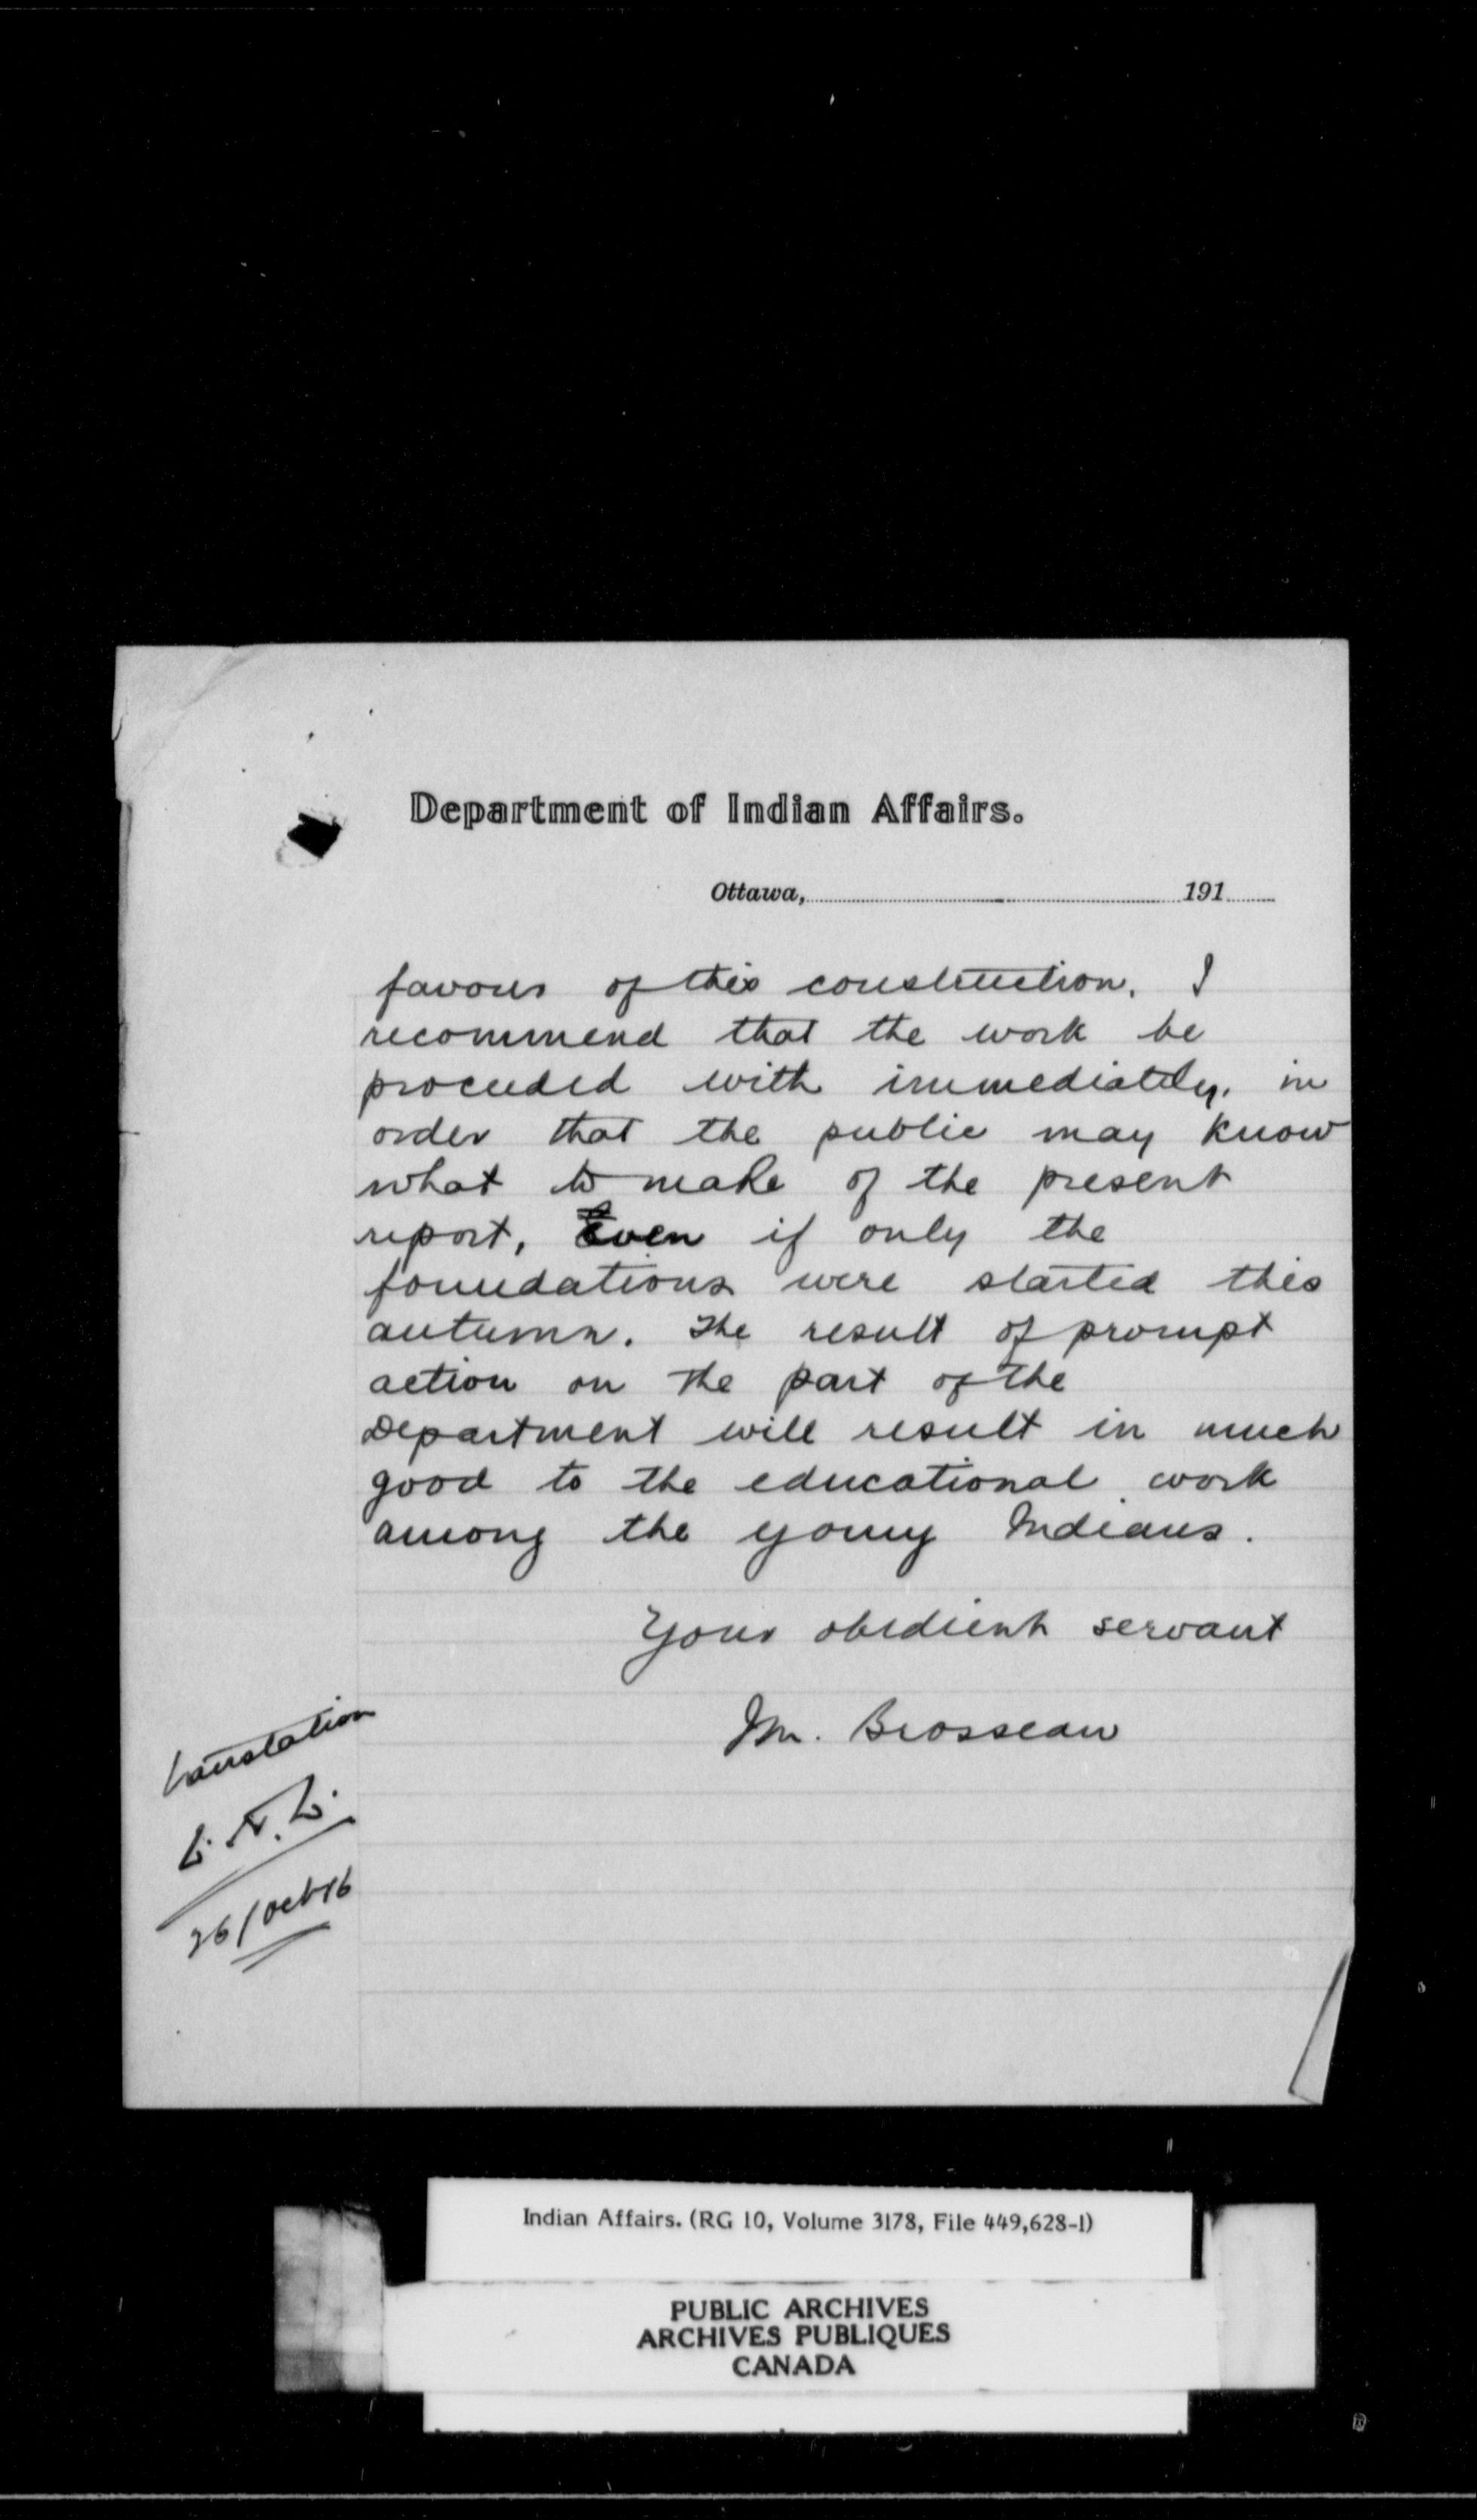 Department of Indian Affairs.
Ottawa, 191
favour of this construction. I
recommend that the work be
proceeded with immediately, in
order that the public may know
what to make of the present
report, Even if only the
foundations were started this
autumn. The result of prompt
action on the part of the
Department will result in much
good to the educational work
among the young Indians.
Your obedient servant
M. Brosseau
translation
26/Oct/16
Indian Affairs. (RG 10, Volume 3178, File 449,628-1)
PUBLIC ARCHIVES
ARCHIVES PUBLIQUES
CANADA